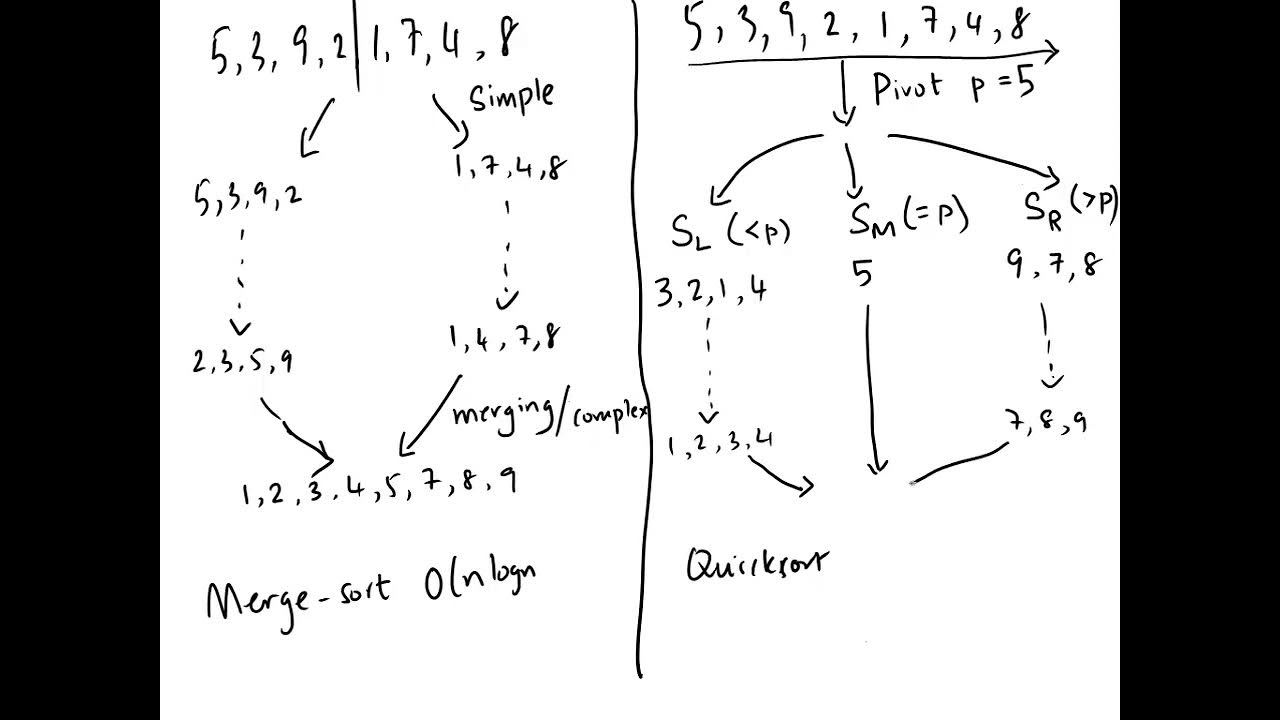 5, 3, 9, 2 | 1, 7, 4, 8
Simple
5, 3, 9, 2
1, 7, 4, 8
2, 3, 5, 9
1, 4, 7, 8
merging/complex
1, 2, 3, 4, 5, 7, 8, 9
Merge-sort O(n logn
5, 3, 9, 2, 1, 7, 4, 8
Pivot p = 5
SL (<p)
SM (=p)
SR (>p)
3, 2, 1, 4
5
9, 7, 8
1, 2, 3, 4
7, 8, 9
Quicksort